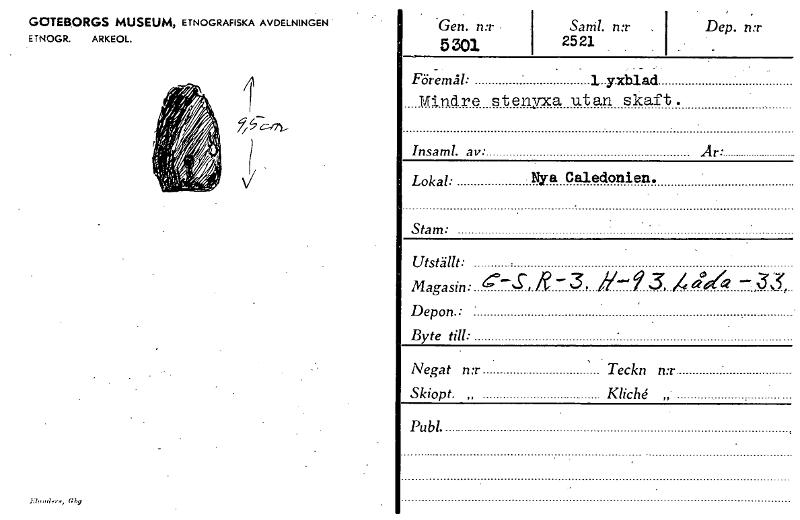 GÖTEBORGS MUSEUM, ETNOGRAFISKA AVDELNINGEN
ETNOGR. ARKEOL.
9,5cm
Elanders, Gbg
Gen. n:r Saml. n:r Dep. n:r
5301 2521
Föremål: 1 yxblad
Mindre stenyxa utan skaft.
Insaml. av: År:
Lokal: Nya Caledonien.
Stam:
Utställt:
Magasin: G-S. R-3. H-93. Låda-33.
Depon.:
Byte till:
Negat n:r Teckn n:r
Skiopt. „ Kliché „
Publ.